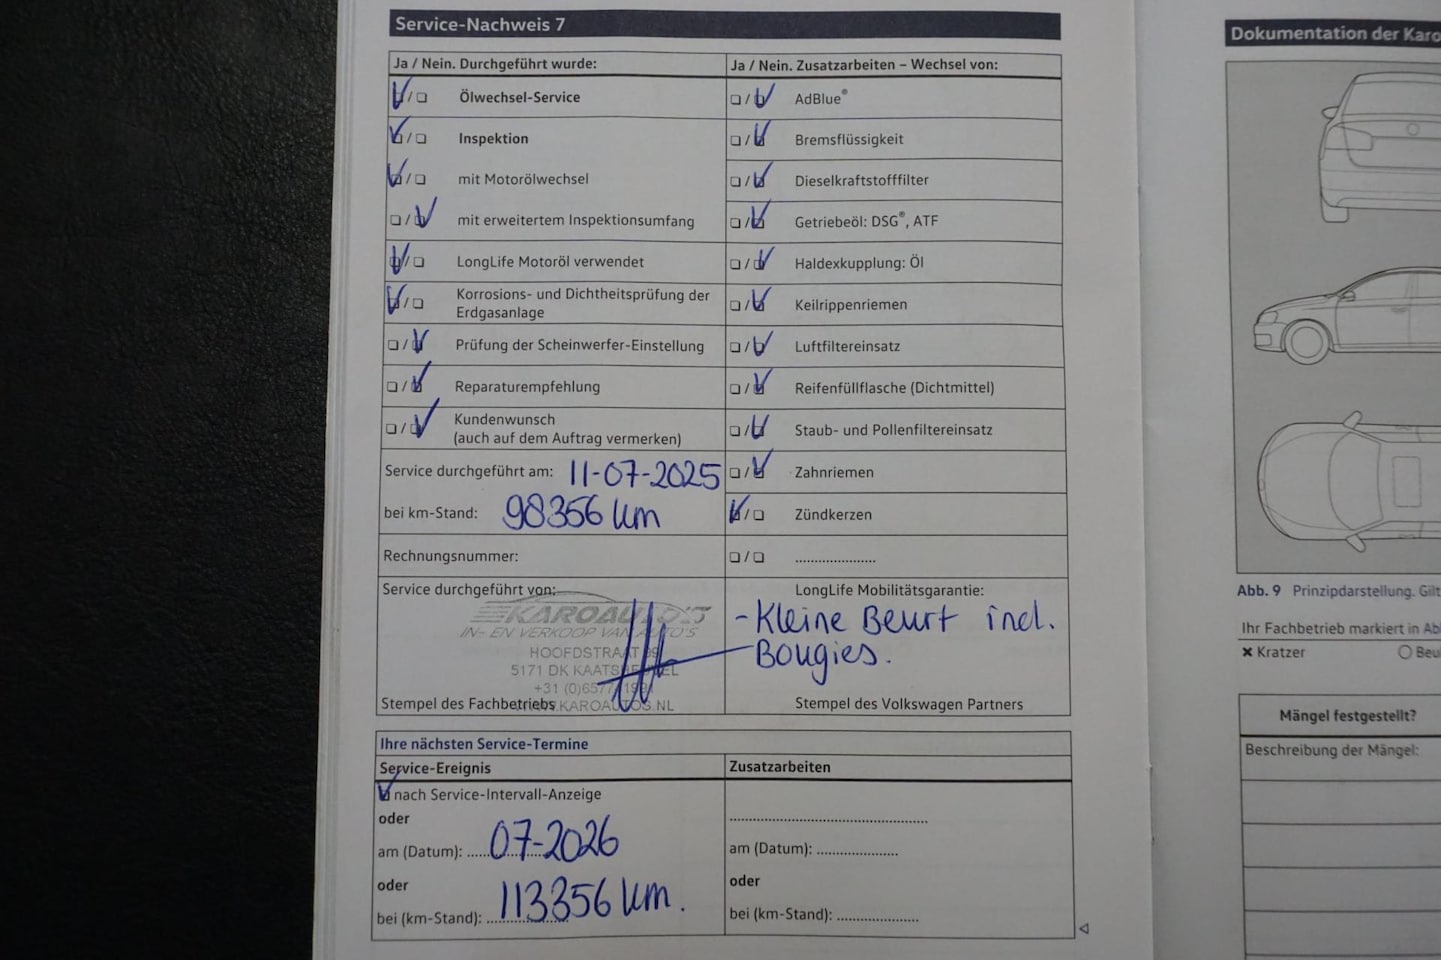 Service-Nachweis 7
Ja / Nein. Durchgeführt wurde:
Ölwechsel-Service
Inspektion
mit Motorölwechsel
mit erweitertem Inspektionsumfang
LongLife Motoröl verwendet
Korrosions- und Dichtheitsprüfung der
Erdgasanlage
Prüfung der Scheinwerfer-Einstellung
Reparaturempfehlung
Kundenwunsch
(auch auf dem Auftrag vermerken)
Service durchgeführt am: 11-07-2025
bei km-Stand: 98356 km
Rechnungsnummer:
Service durchgeführt von:
KAROAUTO'S
IN- EN VERKOOP VAN AUTO'S
HOOFDSTRAAT
5171 DK KAATSHEUVEL
+31
Stempel des Fachbetriebs
WWW.KAROAUTOS.NL
Ja / Nein. Zusatzarbeiten – Wechsel von:
AdBlue®
Bremsflüssigkeit
Dieselkraftstofffilter
Getriebeöl: DSG®, ATF
Haldexkupplung: Öl
Keilrippenriemen
Luftfiltereinsatz
Reifenfüllflasche (Dichtmittel)
Staub- und Pollenfiltereinsatz
Zahnriemen
Zündkerzen
LongLife Mobilitätsgarantie:
- Kleine Beurt incl.
Bougies.
Stempel des Volkswagen Partners
Ihre nächsten Service-Termine
Service-Ereignis
nach Service-Intervall-Anzeige
oder
am (Datum): 07-2026
oder
bei (km-Stand): 113356 km.
Zusatzarbeiten
am (Datum):
oder
bei (km-Stand):
Dokumentation der Karo
Abb. 9 Prinzipdarstellung. Gilt
Ihr Fachbetrieb markiert in Ab
Kratzer Beu
Mängel festgestellt?
Beschreibung der Mängel: